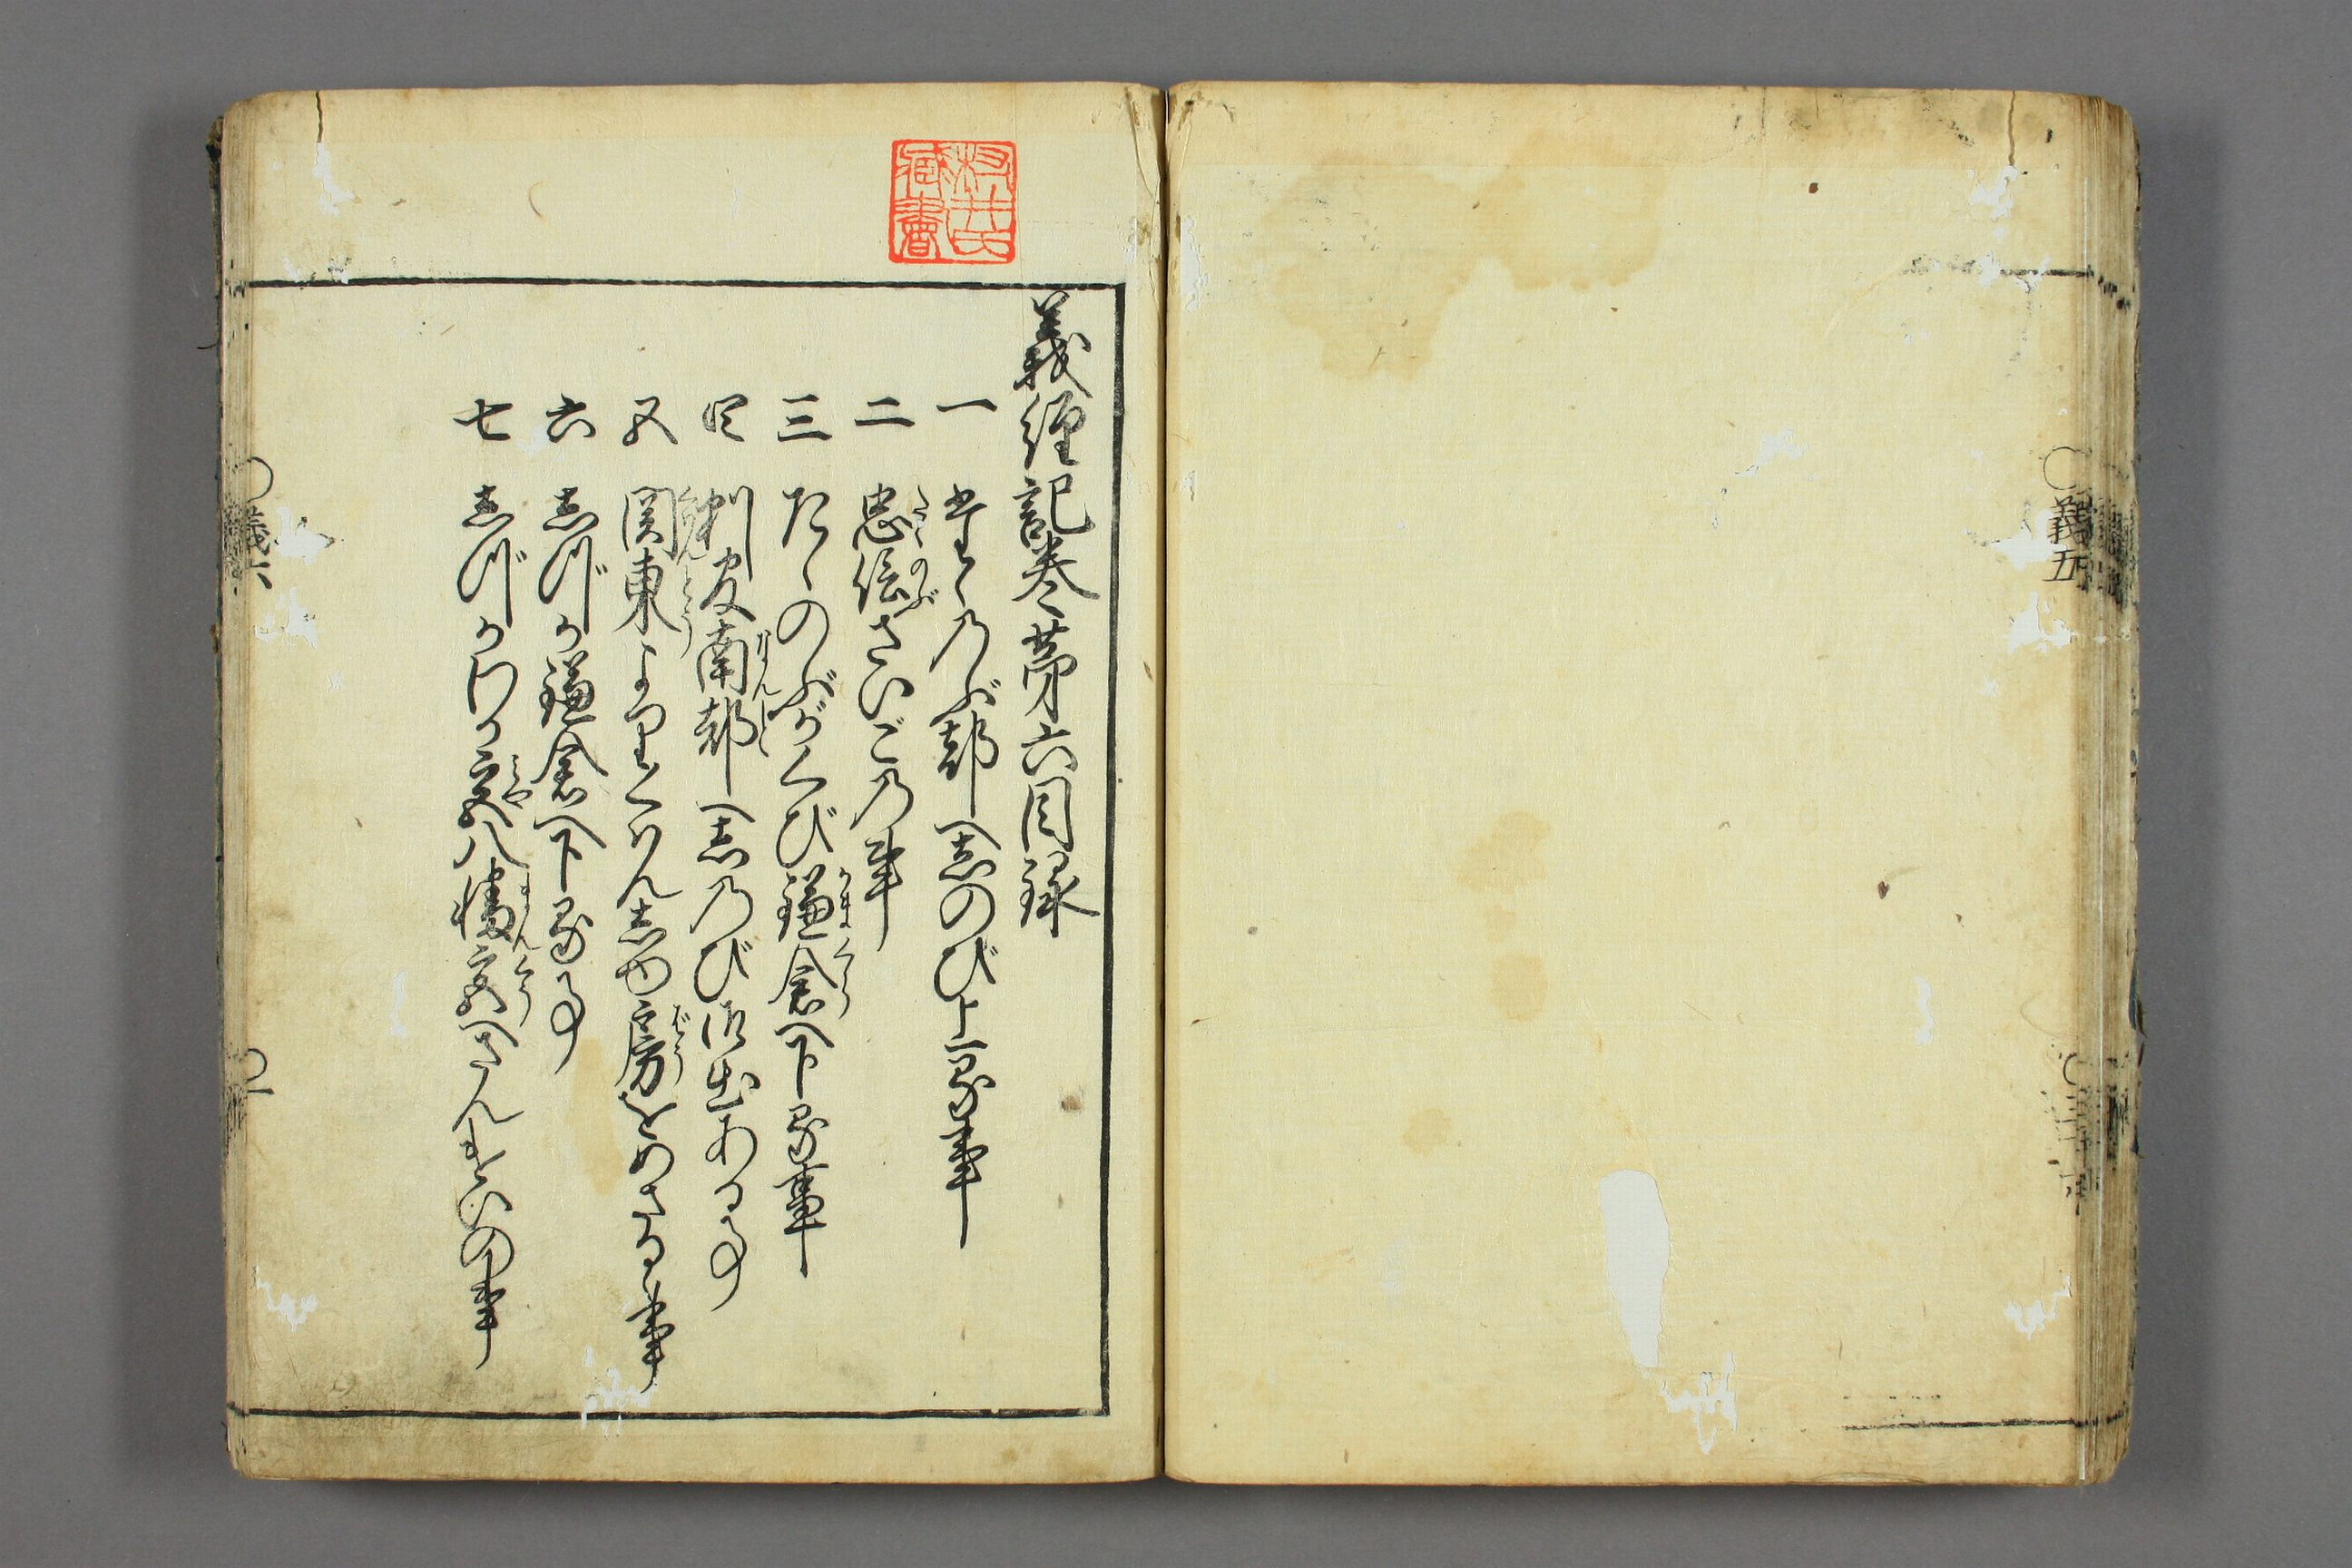 義五
義経記巻第六目録
一 たゞのぶ都へしのび上る事
二 忠信さいごの事
三 たゞのぶがくび鎌倉へ下る事
四 判官南都へしのび御出ある事
五 関東よりくわんしゆ房をめさるゝ事
六 しづか鎌倉へ下る事
七 しづかわか宮八幡宮へさんけいの事
義六
一